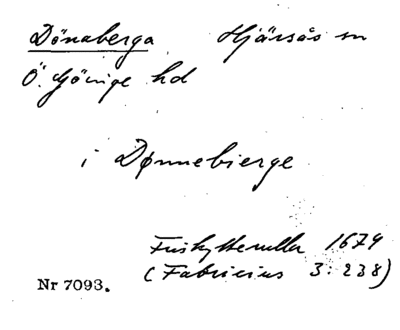 Dönaberga Hjärsås sn
Ö. Göinge hd
i Dønnebierge
Friskytterulla 1679
(Fabricius 3:238)
Nr 7093.